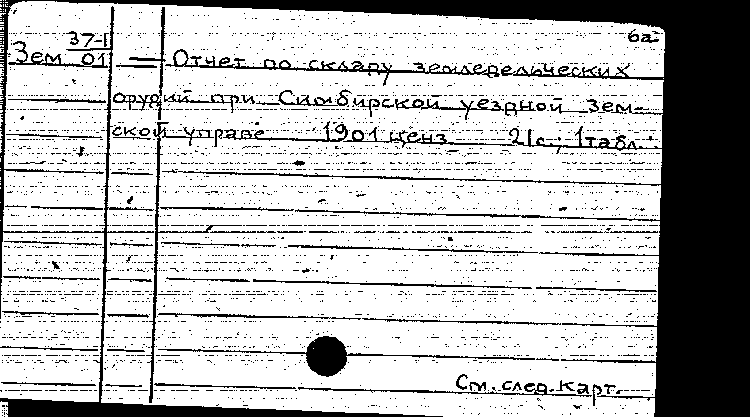 6а-
Зем 37-1/01 — Отчет по складу земледельческих
орудий при Симбирской уездной зем-
ской управе 1901 ценз 21с.; 1табл.
См. след. карт.